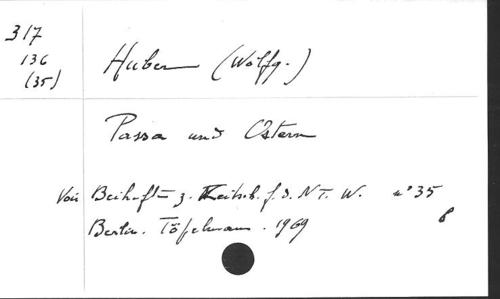 317
136
(35)
Huber (Wolfg.)
Passa und Ostern
Voir Beihefte z. Zeitsch. f. d. N T. W. n° 35
Berlin. Töpelmann. 1969
8